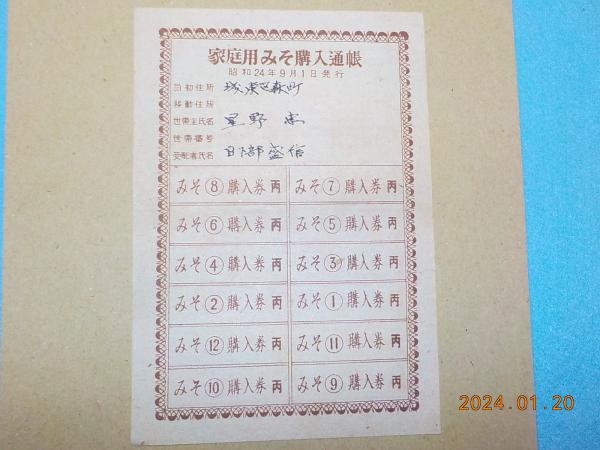 家庭用みそ購入通帳
昭和24年9月1日発行
当初住所 城東区森町
移動住所
世帯主氏名 星野 忠
世帯番号
受配者氏名 日下部盛信
みそ⑧購入券丙 みそ⑦購入券丙
みそ⑥購入券丙 みそ⑤購入券丙
みそ④購入券丙 みそ③購入券丙
みそ②購入券丙 みそ①購入券丙
みそ⑫購入券丙 みそ⑪購入券丙
みそ⑩購入券丙 みそ⑨購入券丙
2024.01.20